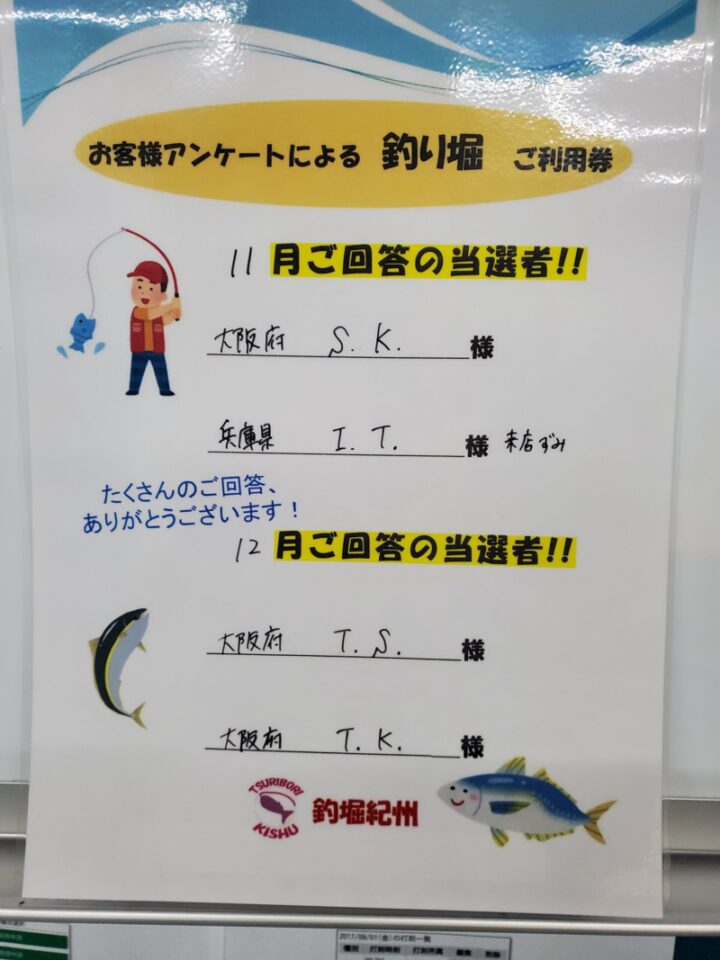 お客様アンケートによる 釣り堀 ご利用券
11月ご回答の当選者!!
大阪府 S.K. 様
兵庫県 I.T. 様 来店ずみ
たくさんのご回答、
ありがとうございます！
12月ご回答の当選者!!
大阪府 T.S. 様
大阪府 T.K. 様
TSURIBORI
KISHU
釣堀紀州
2017/09/01(金)の打刻一覧
種別 打刻時刻 打刻所属